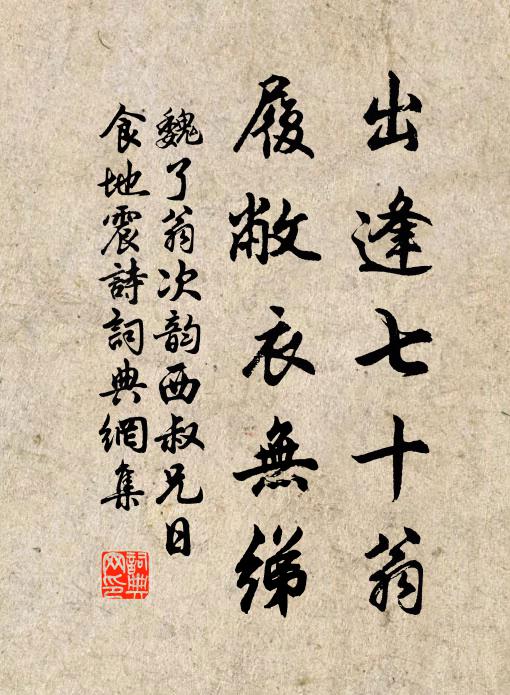 出逢七十翁
履敝衣無綈
魏了翁次韵西叔兄日
食地震詩詞典網集
詞典
网印